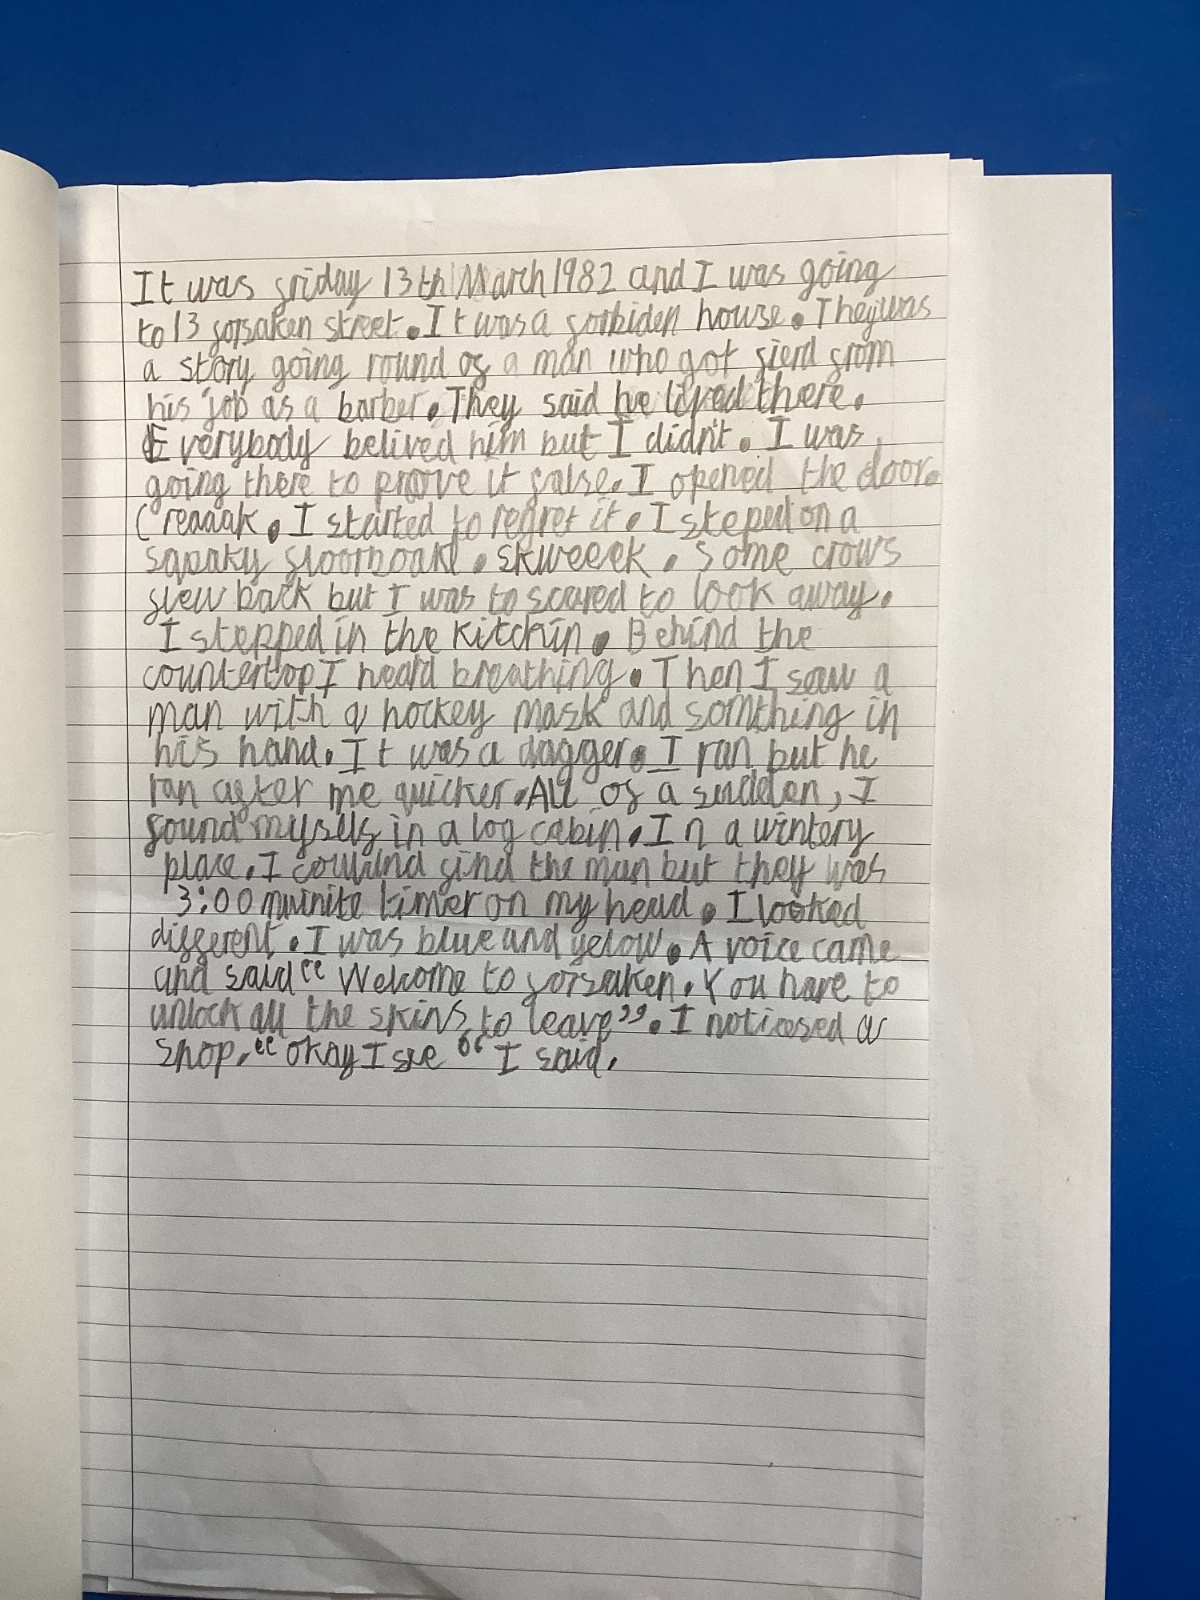 It was friday 13th March 1982 and I was going
to 13 forsaken street. It was a forbiden house. They was
a story going round of a man who got fierd from
his job as a barber. They said he lived there.
Everybody belived him but I didn't. I was
going there to prove it false. I opened the door.
Creaaak. I started to regret it. I steped on a
sqeaky floorboard. skweeek. some crows
flew back but I was to scared to look away.
I stepped in the kitchin. Behind the
countertop I heard breathing. Then I saw a
man with a hockey mask and somthing in
his hand. It was a dagger. I ran but he
ran after me quicker. All of a sudden, I
found myself in a log cabin. In a wintery
place. I find the man but they was
3:00 timer on my head. I looked
different. I was blue and yelow. A voice came
and said "Welcome to forsaken. You have to
unlock all the skins to leave". I noticesed a
shop. "okay I see " I said.